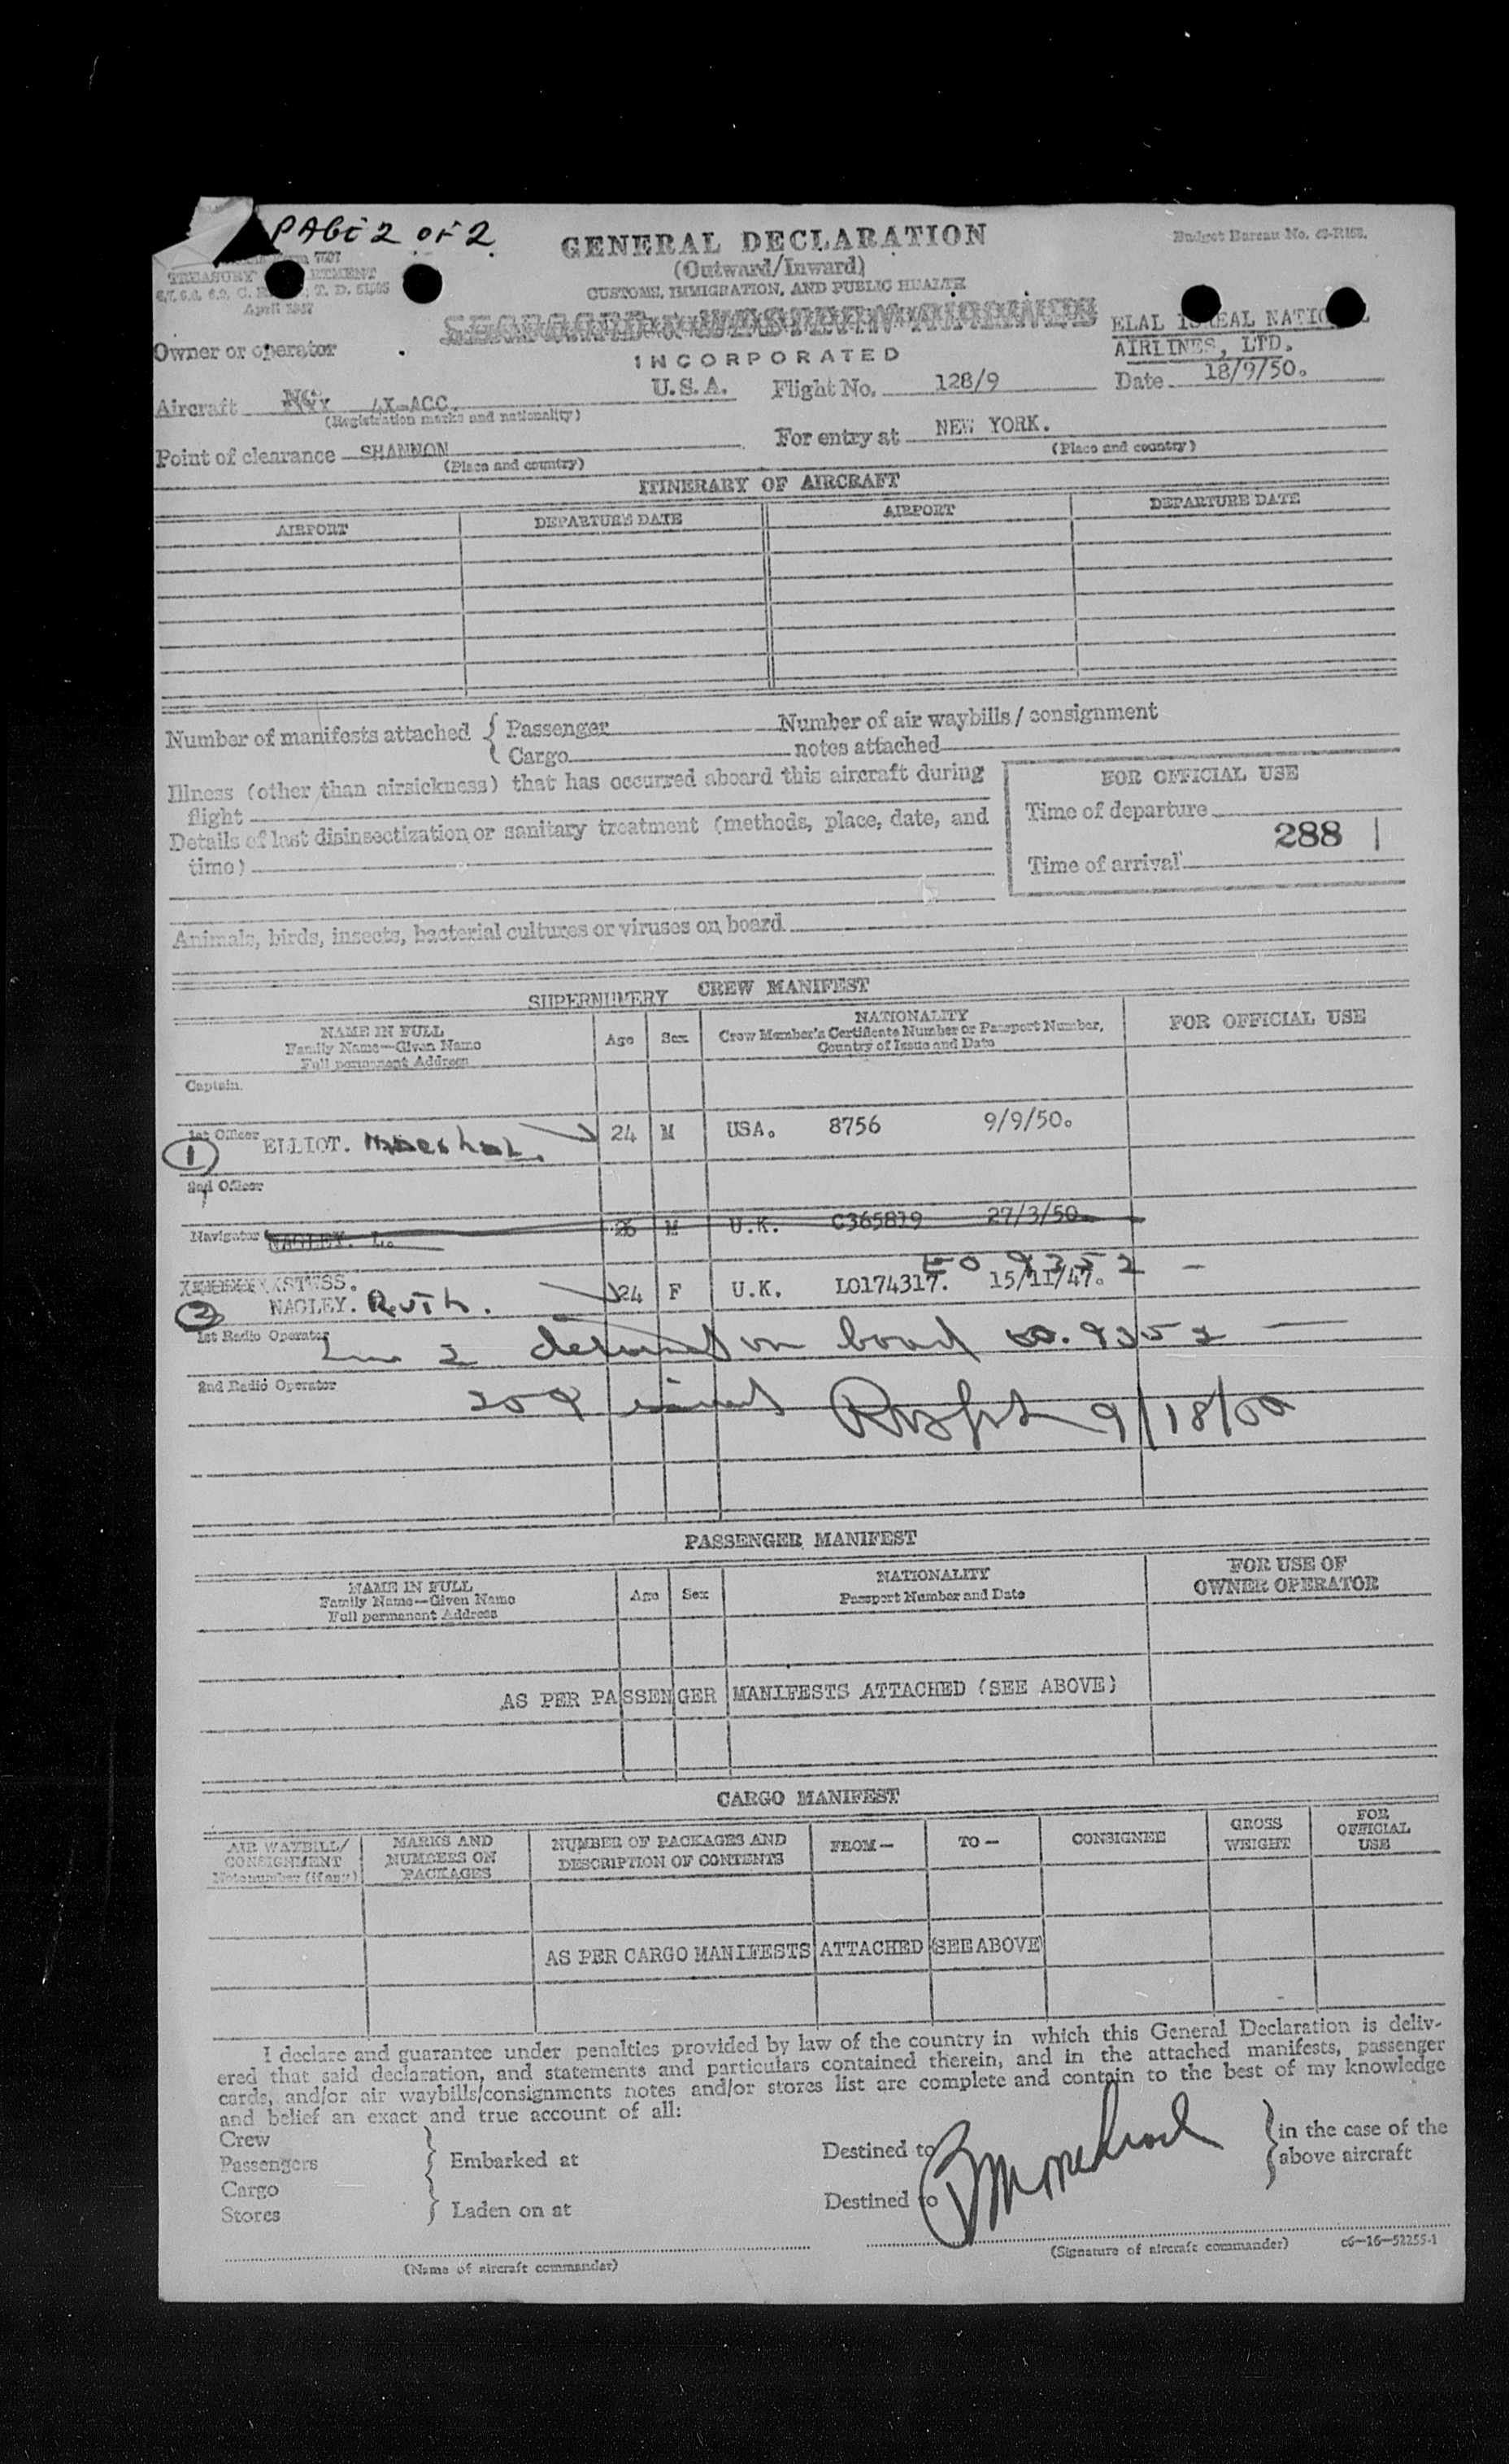 PAGE 2 OF 2
GENERAL DECLARATION
(Outward/Inward)
CUSTOMS, IMMIGRATION, AND PUBLIC HEALTH
Budget Bureau No.
TREASURY
April 1947
ELAL ISREAL NATIONAL
AIRLINES, LTD.
INCORPORATED
Owner or operator
Aircraft NC 4X-ACC. U.S.A. Flight No. 128/9 Date 18/9/50.
(Registration marks and nationality)
Point of clearance SHANNON For entry at NEW YORK.
(Place and country) (Place and country)
ITINERARY OF AIRCRAFT
AIRPORT DEPARTURE DATE AIRPORT DEPARTURE DATE
Number of manifests attached { Passenger Number of air waybills / consignment
Cargo notes attached
Illness (other than airsickness) that has occurred aboard this aircraft during
flight
Details of last disinsectization or sanitary treatment (methods, place, date, and
time)
FOR OFFICIAL USE
Time of departure
288
Time of arrival
Animals, birds, insects, bacterial cultures or viruses on board
SUPERNUMERY CREW MANIFEST
NAME IN FULL
Family Name—Given Name
Full permanent Address
Age Sex
NATIONALITY
Crew Member's Certificate Number or Passport Number,
Country of Issue and Date
FOR OFFICIAL USE
Captain
1st Officer
1 ELLIOT. 24 M USA. 8756 9/9/50.
2nd Officer
Navigator NAGLEY. L. 26 M U.K. C365819 27/3/50.
9352
STWSS.
2 NAGLEY. Ruth. 24 F U.K. LO174317. 15/11/47.
1st Radio Operator
2 on board 9352
2nd Radio Operator
259 9/18/50
PASSENGER MANIFEST
NAME IN FULL
Family Name—Given Name
Full permanent Address
Age Sex
NATIONALITY
Passport Number and Date
FOR USE OF
OWNER OPERATOR
AS PER PASSENGER MANIFESTS ATTACHED (SEE ABOVE)
CARGO MANIFEST
AIR WAYBILL/
CONSIGNMENT
Note number (if any)
MARKS AND
NUMBERS ON
PACKAGES
NUMBER OF PACKAGES AND
DESCRIPTION OF CONTENTS
FROM—
TO—
CONSIGNEE
GROSS
WEIGHT
FOR
OFFICIAL
USE
AS PER CARGO MANIFESTS ATTACHED (SEE ABOVE)
I declare and guarantee under penalties provided by law of the country in which this General Declaration is deliv-
ered that said declaration, and statements and particulars contained therein, and in the attached manifests, passenger
cards, and/or air waybills/consignments notes and/or stores list are complete and contain to the best of my knowledge
and belief an exact and true account of all:
Crew
Passengers } Embarked at Destined to } in the case of the
above aircraft
Cargo
Stores } Laden on at Destined to
(Name of aircraft commander) (Signature of aircraft commander) c6—16—52255-1